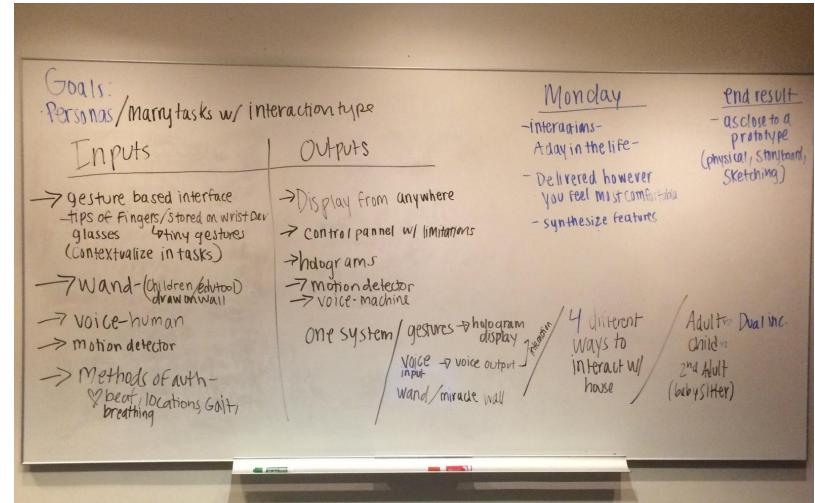 Goals:
Personas/Marry tasks w/ interaction type
Inputs
→ gesture based interface
- tips of Fingers/Stored on wrist Dev
glasses ↳ tiny gestures
(Contextualize in tasks)
→ Wand - (Children/edutool)
draw on wall
→ Voice-human
→ motion detector
→ Methods of auth -
♡ beat, locations, Gait,
breathing
Outputs
→ Display from anywhere
→ control pannel w/ limitations
→ holograms
→ motion detector
→ voice-machine
one system/
gestures → hologram
display
voice → voice output
input
interaction
wand/miracle wall
4 different
ways to
interact w/
house
Adult - Dual inc.
child -
2nd Adult
(babysitter)
Monday
- interactions -
A day in the life -
- Delivered however
you feel most comfortable
- synthesize features
end result
- as close to a
prototype
(physical, storyboard,
sketching)